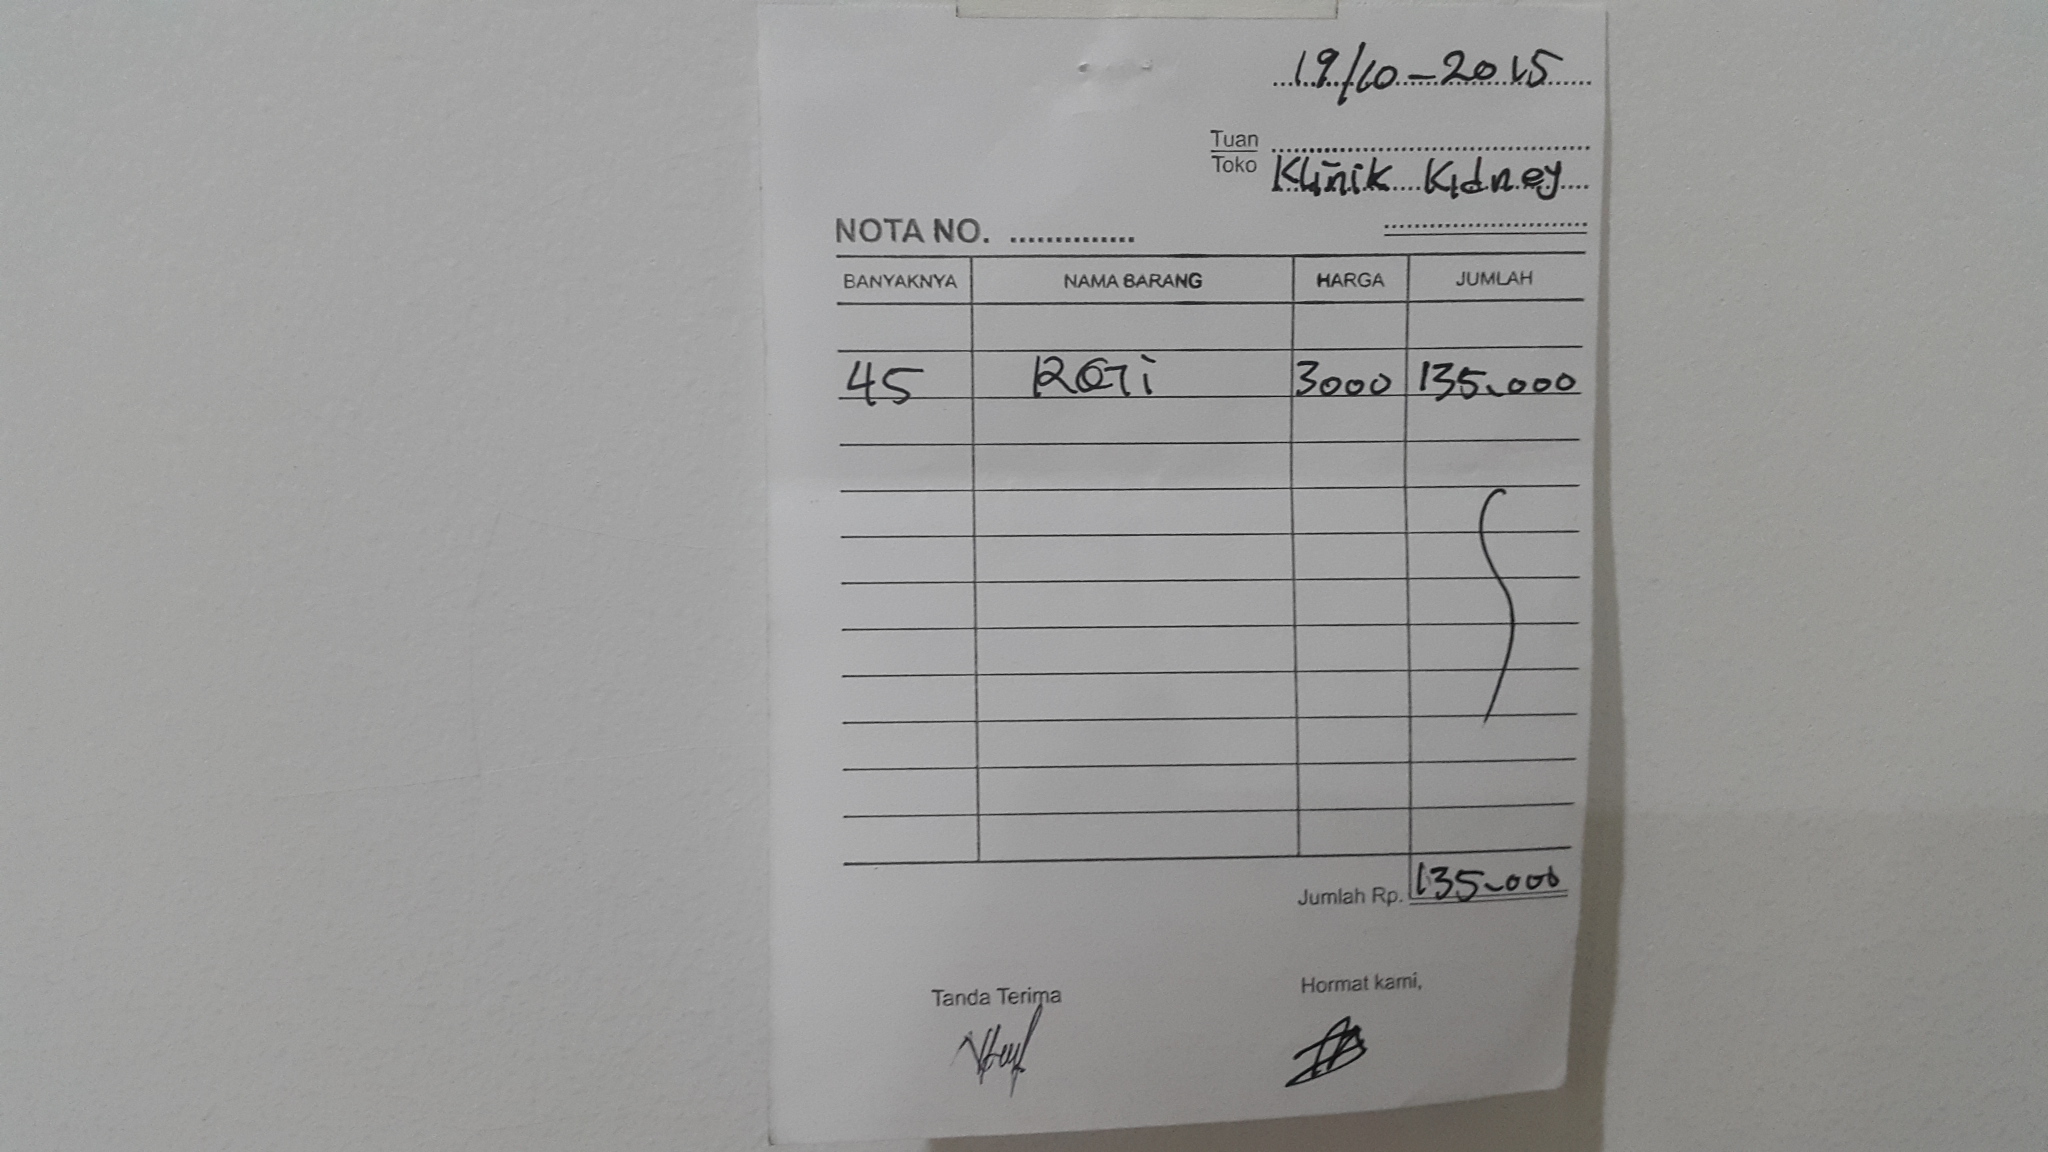 19/10-2015
Tuan
Toko Klinik Kidney
NOTA NO. ..............
BANYAKNYA NAMA BARANG HARGA JUMLAH
45 ROTi 3000 135.000
Jumlah Rp. 135.000
Tanda Terima Hormat kami,